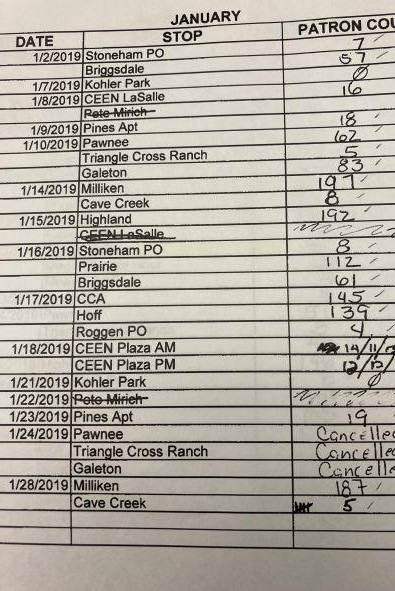 JANUARY
DATE STOP PATRON COU
1/2/2019 Stoneham PO 7
Briggsdale 57
1/7/2019 Kohler Park 0
1/8/2019 CEEN LaSalle 16
Pete Mirich
1/9/2019 Pines Apt 18
1/10/2019 Pawnee 62
Triangle Cross Ranch 5
Galeton 83
1/14/2019 Milliken 197
Cave Creek 8
1/15/2019 Highland 192
CEEN LaSalle
1/16/2019 Stoneham PO 8
Prairie 112
Briggsdale 61
1/17/2019 CCA 145
Hoff 139
Roggen PO 4
1/18/2019 CEEN Plaza AM 14/11/
CEEN Plaza PM 12/13
1/21/2019 Kohler Park 0
1/22/2019 Pete Mirich
1/23/2019 Pines Apt 19
1/24/2019 Pawnee Cancelle
Triangle Cross Ranch Cancelle
Galeton Cancelle
1/28/2019 Milliken 187
Cave Creek 5